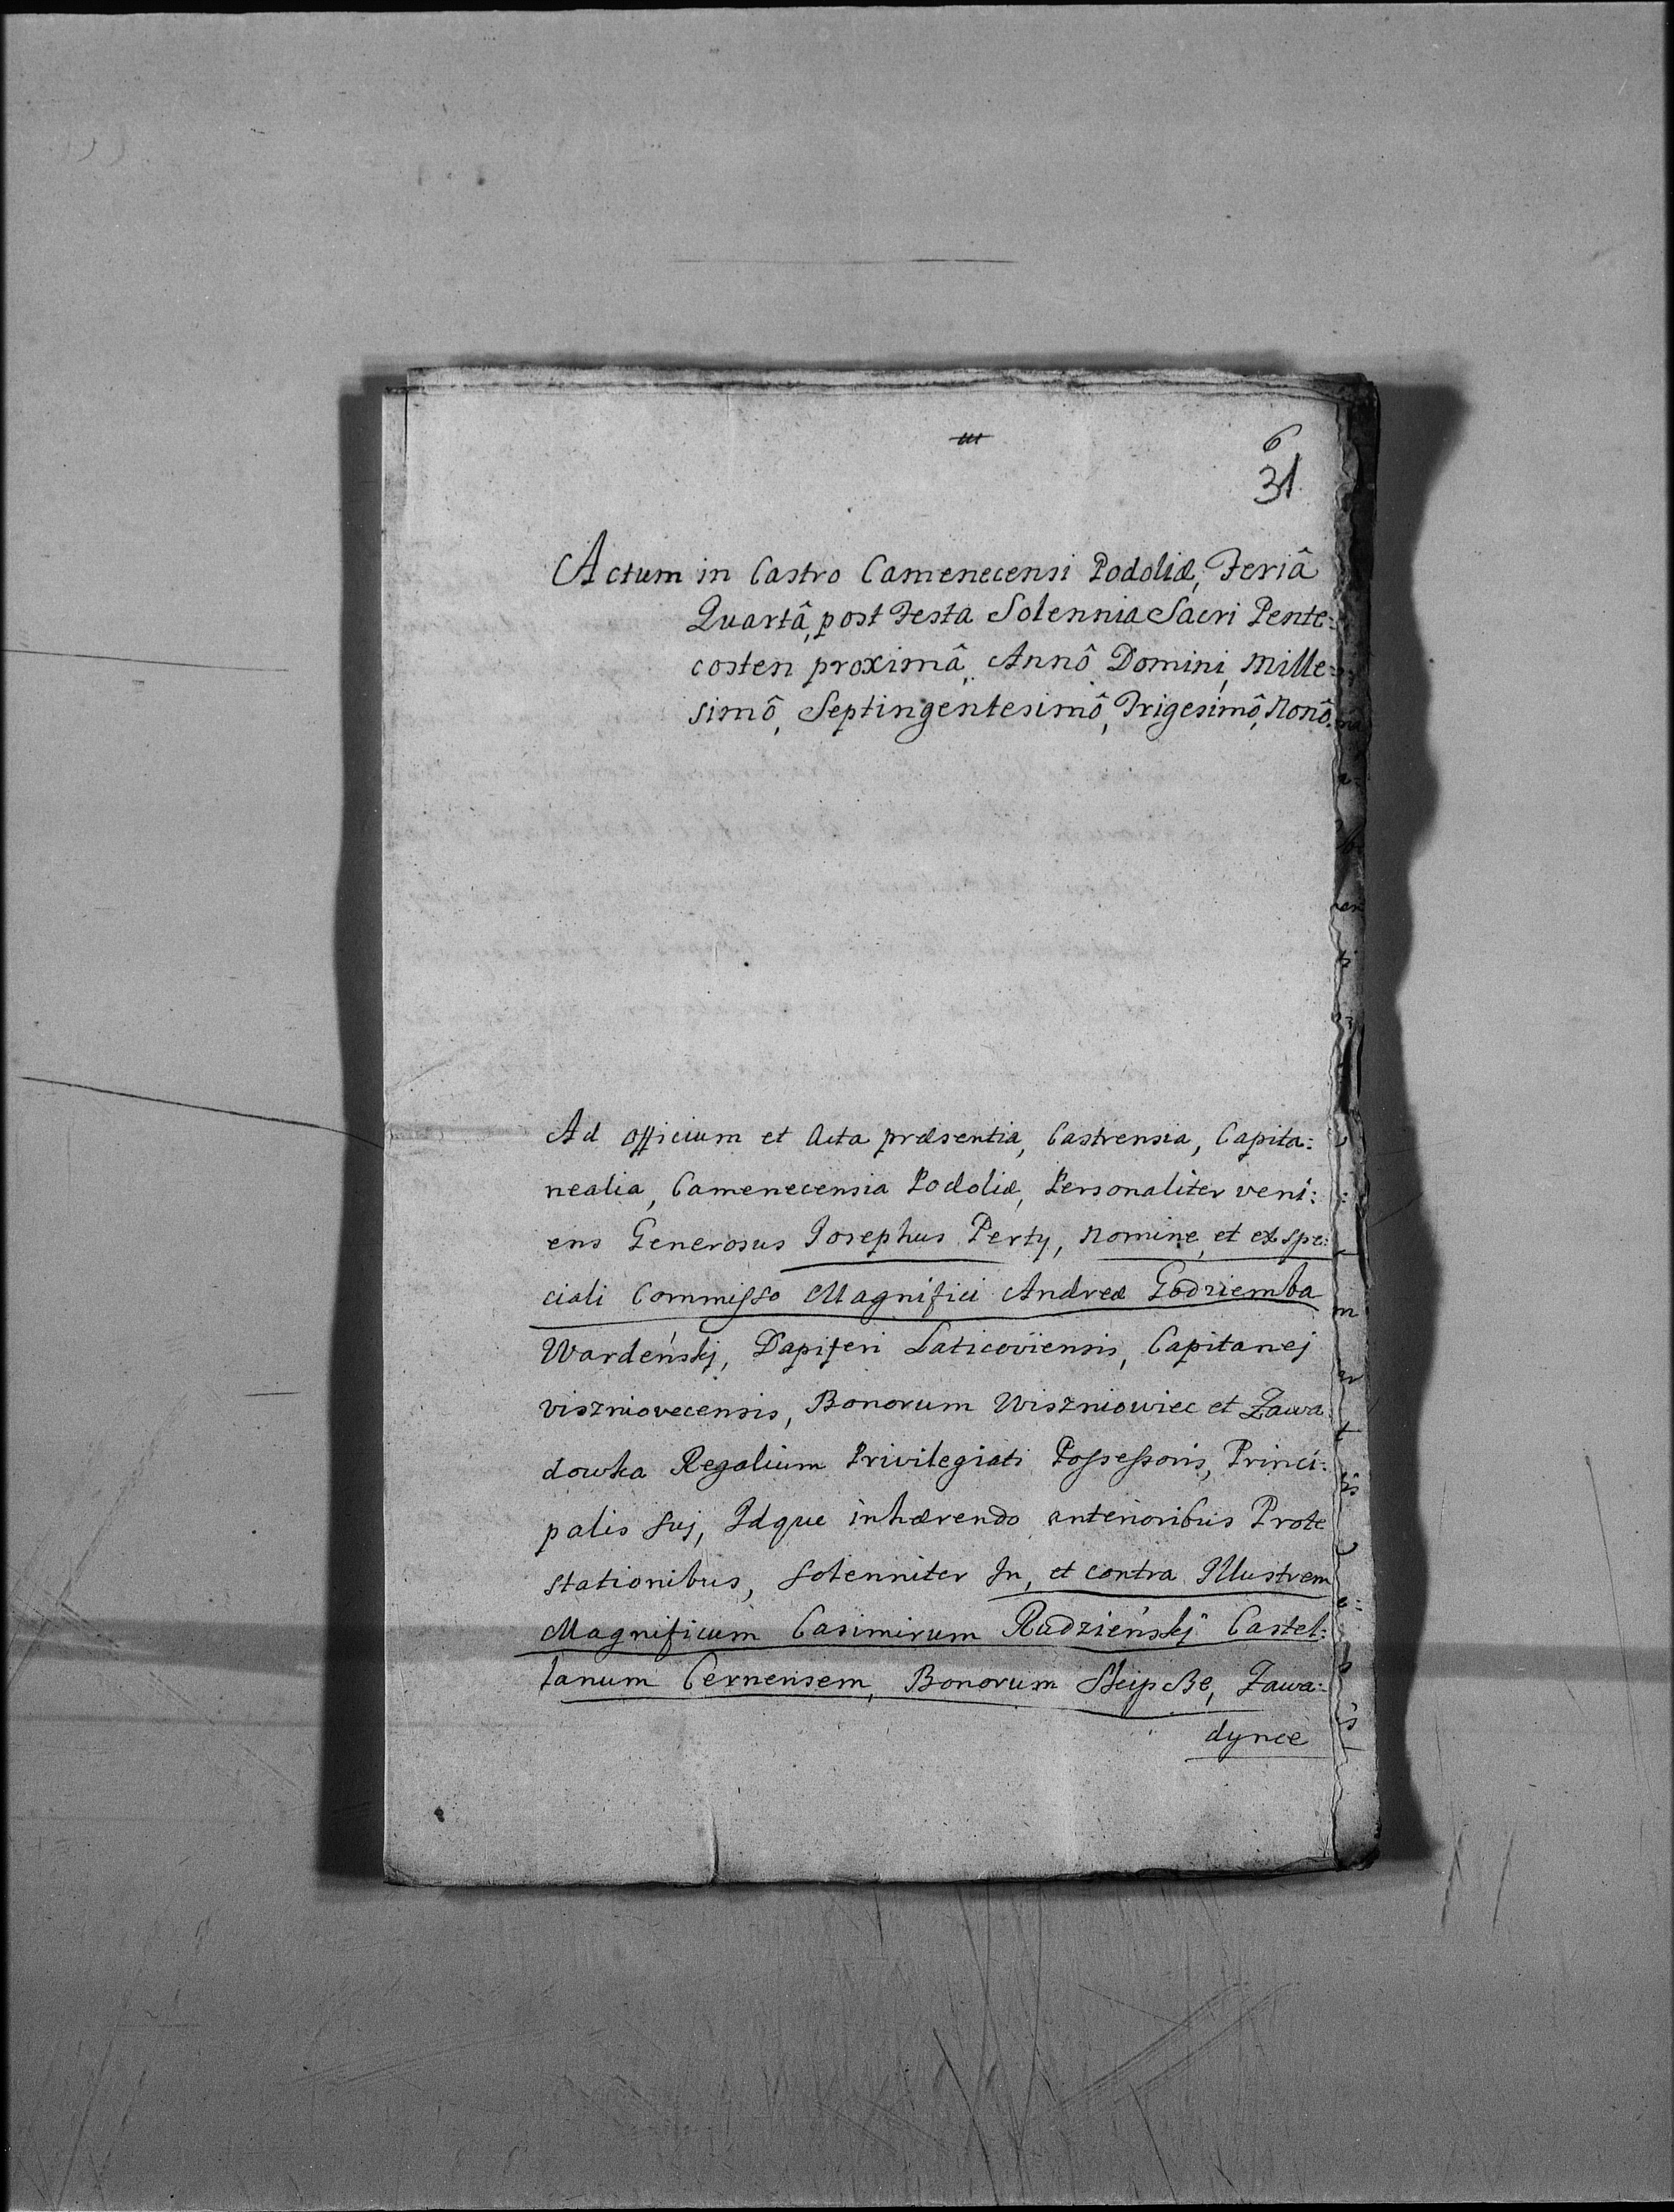 6
31
Actum in Castro Camenecensi Podoliæ, Feriâ
Quartâ, post Festa Solennia Sacri Pente:
costen proximâ, Annô Domini, Mille:
simô, Septingentesimô, Trigesimô, Nonô.
Ad officium et Acta præsentia, Castrensia, Capita:
nealia, Camenecensia Podoliæ, Personaliter veni:
ens Generosus Josephus Perty, Nomine, et ex spe:
ciali Commisso Magnifici Andreæ Godziemba
Wardeńskj, Dapiferi Laticoviensis, Capitanej
viszniovecensis, Bonorum Wiszniowiec et Zawa:
dowka Regalium Privilegiati Possessoris, Princi:
palis suj, Idque inhærendo anterioribus Prote
stationibus, Solenniter In, et contra Illustrem
Magnificum Casimirum Rudzieńskj Castel:
lanum Cernensem, Bonorum Zawa:
dynce